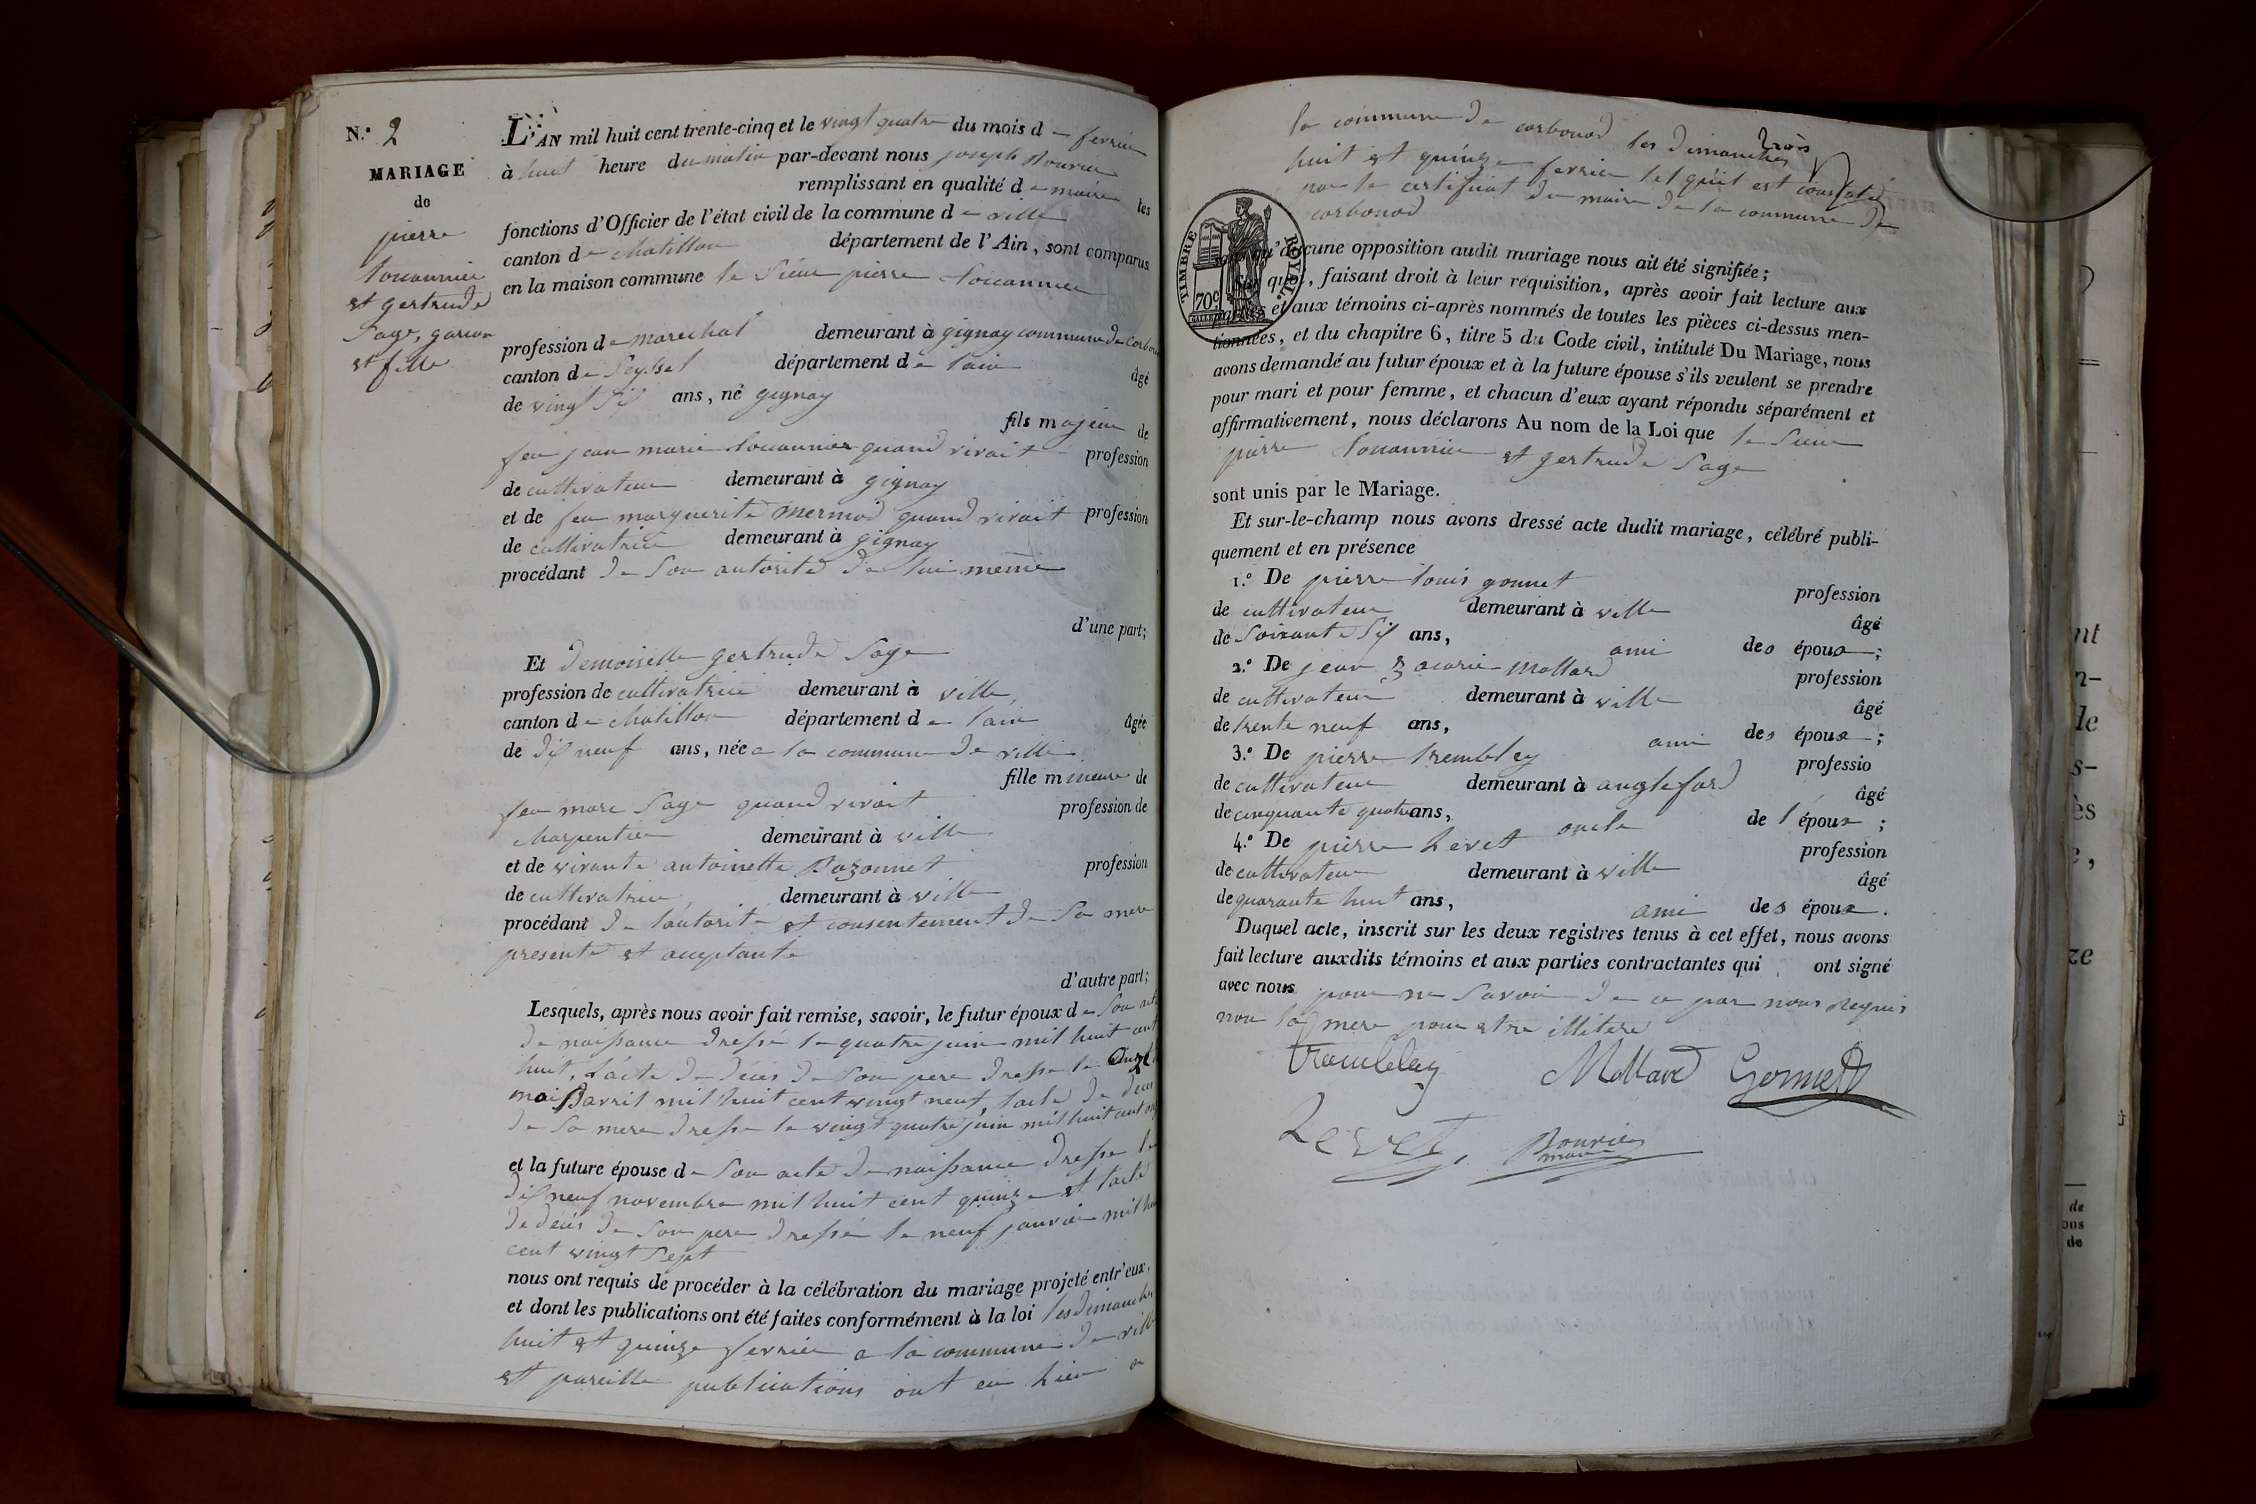 N.º 2
MARIAGE
de
pierre
et gertrude
Sage, garcon
et fille
L'AN mil huit cent trente-cinq et le vingt quatre du mois de fevrier
à huit heure du matin par-devant nous joseph Bouvier
remplissant en qualité de maire les
fonctions d'Officier de l'état civil de la commune de ville
canton de Chatillon département de l'Ain, sont comparus
en la maison commune le Sieur pierre
profession de marechal demeurant à gignay commune de Corbonod
canton de Seyssel département de l'ain âgé
de vingt six ans, né gignay
fils majeur de
feu jean marie quand vivait profession
de cultivateur demeurant à gignay
et de feu marguerite mermod quand vivait profession
de cultivatrice demeurant à gignay
procédant de son autorité de lui meme
d'une part;
Et demoiselle gertrude Sage
profession de cultivatrice demeurant à ville
canton de Chatillon département de l'ain âgée
de dix neuf ans, née a la commune de ville
fille mineure de
feu marc Sage quand vivait profession de
Charpentier demeurant à ville
et de vivante antoinette Bozonnet profession
de cultivatrice demeurant à ville
procédant de l'autorité et consentement de sa mere
presente et acceptante
d'autre part;
Lesquels, après nous avoir fait remise, savoir, le futur époux de son acte
de naissance dressé le quatre juin mil huit cent
huit, l'acte de décés de son pere dressé le
avril mil huit cent vingt neuf, l'acte de deces
de sa mere dressé le vingt quatre juin mil huit cent
et la future épouse de son acte de naissance dressé le
dix neuf novembre mil huit cent quinze et l'acte
de decés de son pere dressé le neuf janvier mil huit
cent vingt sept
nous ont requis de procéder à la célébration du mariage projeté entr'eux,
et dont les publications ont été faites conformément à la loi les dimanches
huit et quinze fevrier a la commune de ville
et pareille publications ont eu lieu a
la commune de corbonod les dimanches
huit et quinze fevrier tel qu'il est constaté
par le certificat du maire de la commune de
corbonod
TIMBRE ROYAL.
70c
qu'aucune opposition audit mariage nous ait été signifiée;
que, faisant droit à leur réquisition, après avoir fait lecture aux
parties et aux témoins ci-après nommés de toutes les pièces ci-dessus men-
tionnées, et du chapitre 6, titre 5 du Code civil, intitulé Du Mariage, nous
avons demandé au futur époux et à la future épouse s'ils veulent se prendre
pour mari et pour femme, et chacun d'eux ayant répondu séparément et
affirmativement, nous déclarons Au nom de la Loi que le Sieur
pierre et gertrude Sage
sont unis par le Mariage.
Et sur-le-champ nous avons dressé acte dudit mariage, célébré publi-
quement et en présence
1.º De pierre louis gonnet profession
de cultivateur demeurant à ville âgé
de soixante six ans, ami des époux;
2.º De jean mollard profession
de cultivateur demeurant à ville âgé
de trente neuf ans, ami des époux;
3.º De pierre trembley professio
de cultivateur demeurant à angleford âgé
de cinquante quatre ans, oncle de l'époux;
4.º De pierre Levet profession
de cultivateur demeurant à ville âgé
de quarante huit ans, ami des époux.
Duquel acte, inscrit sur les deux registres tenus à cet effet, nous avons
fait lecture auxdits témoins et aux parties contractantes qui ont signé
avec nous pour ne savoir de ce par nous requis
non la mere pour etre illitere
Trembley Mollard Gonnet
Levet, Bouvier
maire